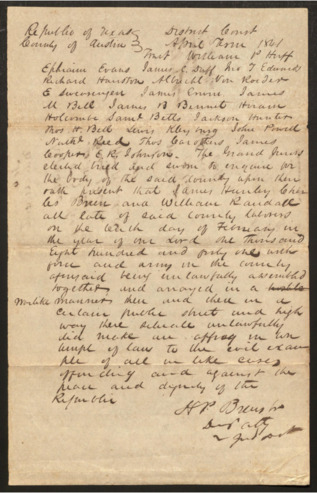 Republic of Texas } District Court
County of Austin } April Term 1841
That William P Huff
Ephraim Evans James C Duff Geo T Edwards
Richard Hairston Albrecht Von Roeder
E Swearengen James Ervine James
M Bell James B Bennett Hiram
Holcomb Saml Betts Jackson Hunter
Thos H Bell Lewis Kleberg John Powell
Nathl Reed Thos Carothers James
Cooper E R Johnson. The Grand Jurors
elected tried and sworn to enquire for
the body of the said County upon their
oath present that James Hurley Char
les Breen and William Randall
all late of said County laborers
on the tenth day of February in
the year of our Lord one thousand
Eight hundred and forty one with
force and arms in the county
aforesaid being unlawfully assembled
together and arrayed in a
warlike manner then and there in a
certain public street and high
way there situate unlawfully
did make an affray in con
tempt of law to the evil exam
ple of all in like cases
offending and against the
peace and dignity of the
Republic
H P Brewster
Dis Atty